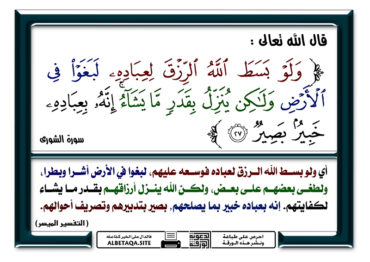 قال الله تعالى :
﴿ وَلَوْ بَسَطَ اللَّهُ الرِّزْقَ لِعِبَادِهِ لَبَغَوْا فِي
الْأَرْضِ وَلَٰكِن يُنَزِّلُ بِقَدَرٍ مَّا يَشَاءُ ۚ إِنَّهُ بِعِبَادِهِ
خَبِيرٌ بَصِيرٌ ٢٧ ﴾
سورة الشورى
أي ولو بسط الله الرزق لعباده فوسعه عليهم، لبغوا في الأرض أشرا وبطرا،
ولطغى بعضهم على بعض، ولكن الله ينزل أرزاقهم بقدر ما يشاء
لكفايتهم. إنه بعباده خبير بما يصلحهم، بصير بتدبيرهم وتصريف أحوالهم.
(التفسير الميسر)
احرص على طباعة
ونشر هذه الورقة
فالدال على الخير كفاعله
ALBETAQA.SITE